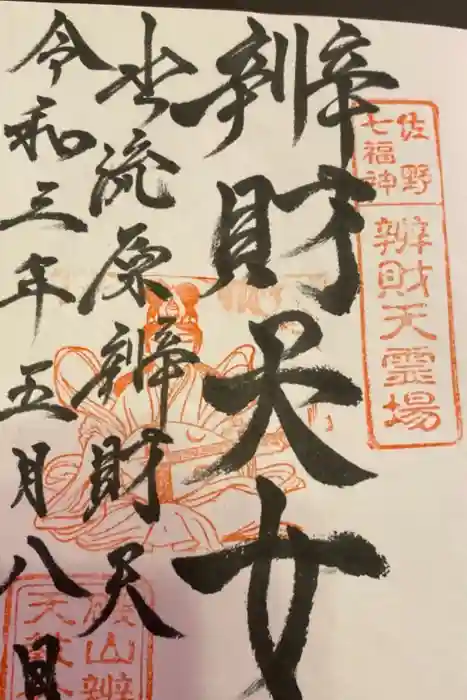 佐野
七福神
辨財天霊場
辨財天女
出流原辨財天
令和三年五月八日